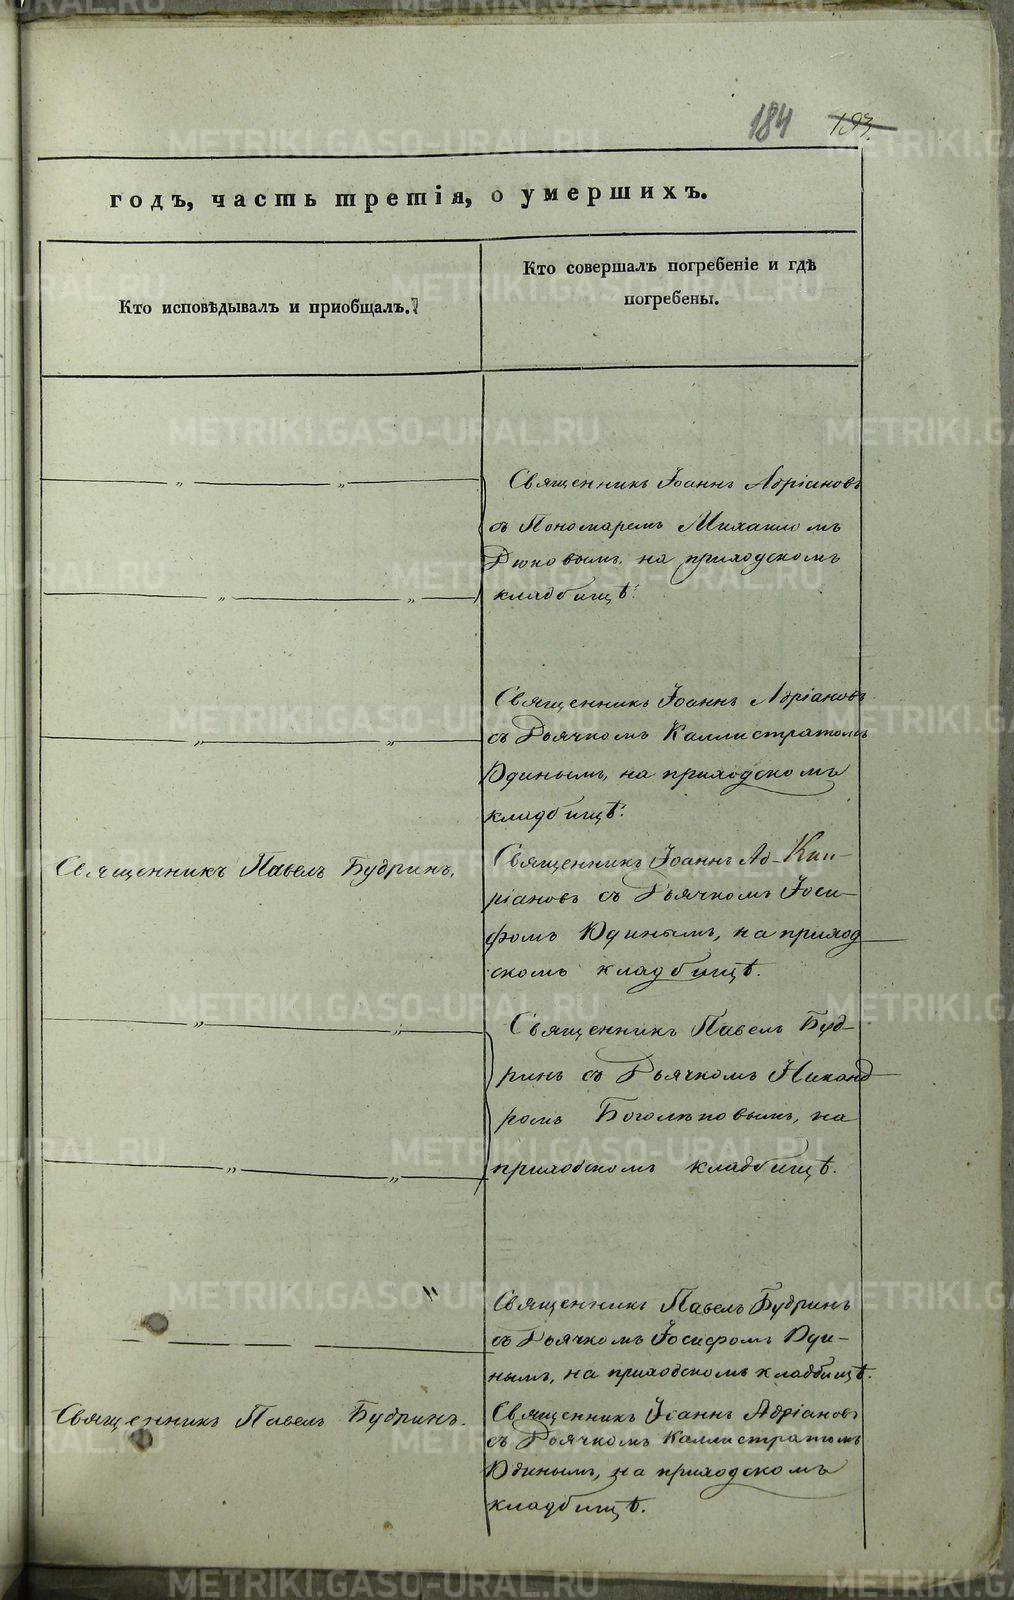 184 193.
годъ, часть третія, о умершихъ.
Кто исповѣдывалъ и приобщалъ.
Кто совершалъ погребеніе и гдѣ
погребены.
Священникъ Іоаннъ Адріановъ
съ Пономаремъ Михаиломъ
на приходскомъ
кладбищѣ.
Священникъ Іоаннъ Адріановъ
съ Дьячкомъ Каллистратомъ
Юдинымъ, на приходскомъ
кладбищѣ.
Священникъ Павелъ Будринъ.
Священникъ Іоаннъ Ад-
ріановъ съ Дьячкомъ Іоси-
фомъ Юдинымъ, на приход
скомъ кладбищѣ.
Священникъ Павелъ Буд-
ринъ съ Дьячкомъ Николаемъ
Боголѣповымъ, на
приходскомъ кладбищѣ.
Священникъ Павелъ Будринъ
съ Дьячкомъ Іосифомъ Юди-
нымъ, на приходскомъ кладбищѣ.
Священникъ Павелъ Будринъ.
Священникъ Іоаннъ Адріановъ
съ Дьячкомъ Каллистратомъ
Юдинымъ, на приходскомъ
кладбищѣ.
METRIKI.GASO-URAL.RU